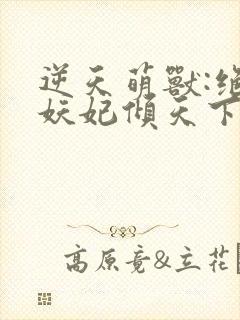 逆天萌獸:絕
妖妃傾天下
高原竟&立花